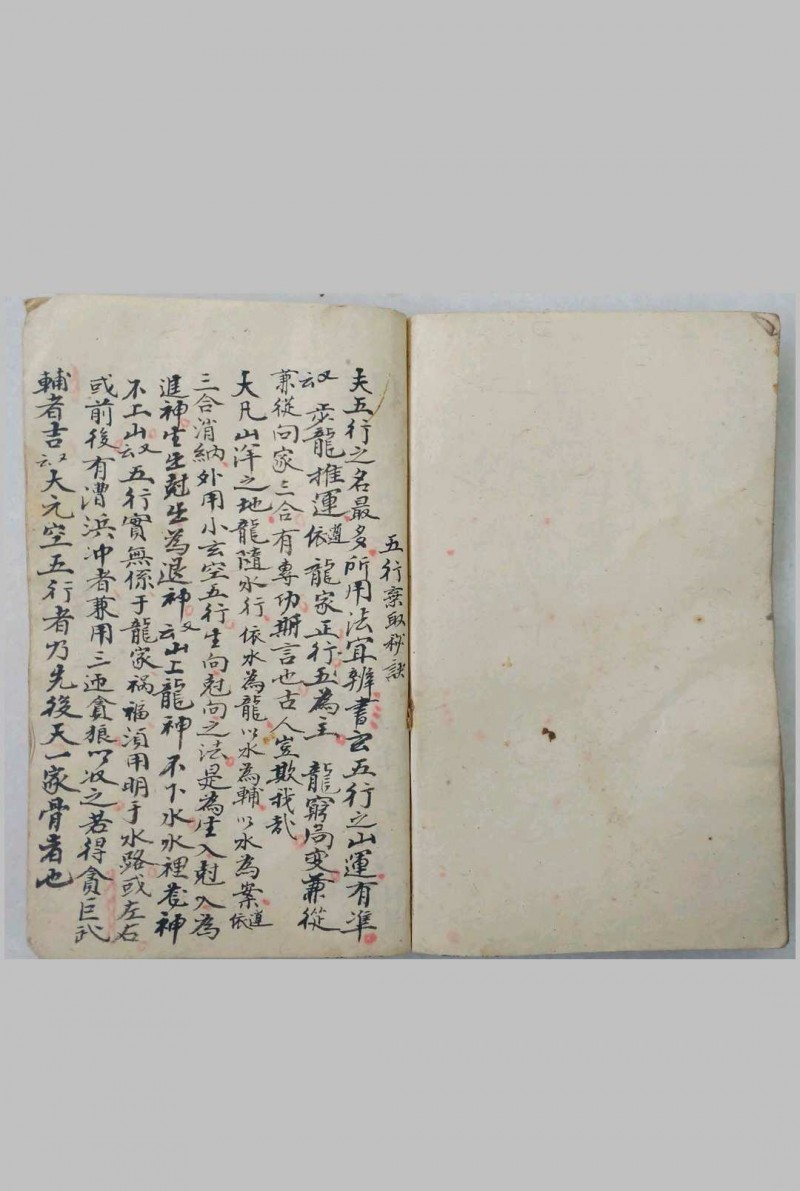 五行棄取秘訣
夫五行之名最多所用法宜辨書云五行之山運有準
又云步龍推運遵依龍家正行五為主龍窮局变兼從
兼從向家三合有專功斯言也古人豈欺我哉
大凡山洋之地龍隨水行依水為龍以水為輔以水為案遵依
三合消納外用小玄空五行生向尅向之法是為生入尅入為
進神生生尅生為退神又云山上龍神不下水水裡龍神
不上山又云五行實無係于龍家祸福須用明于水路或左右
或前後有漕浜冲者兼用三迊貪狼以收之若得貪巨武
輔者吉又云大元空五行者乃先後天一家骨者也